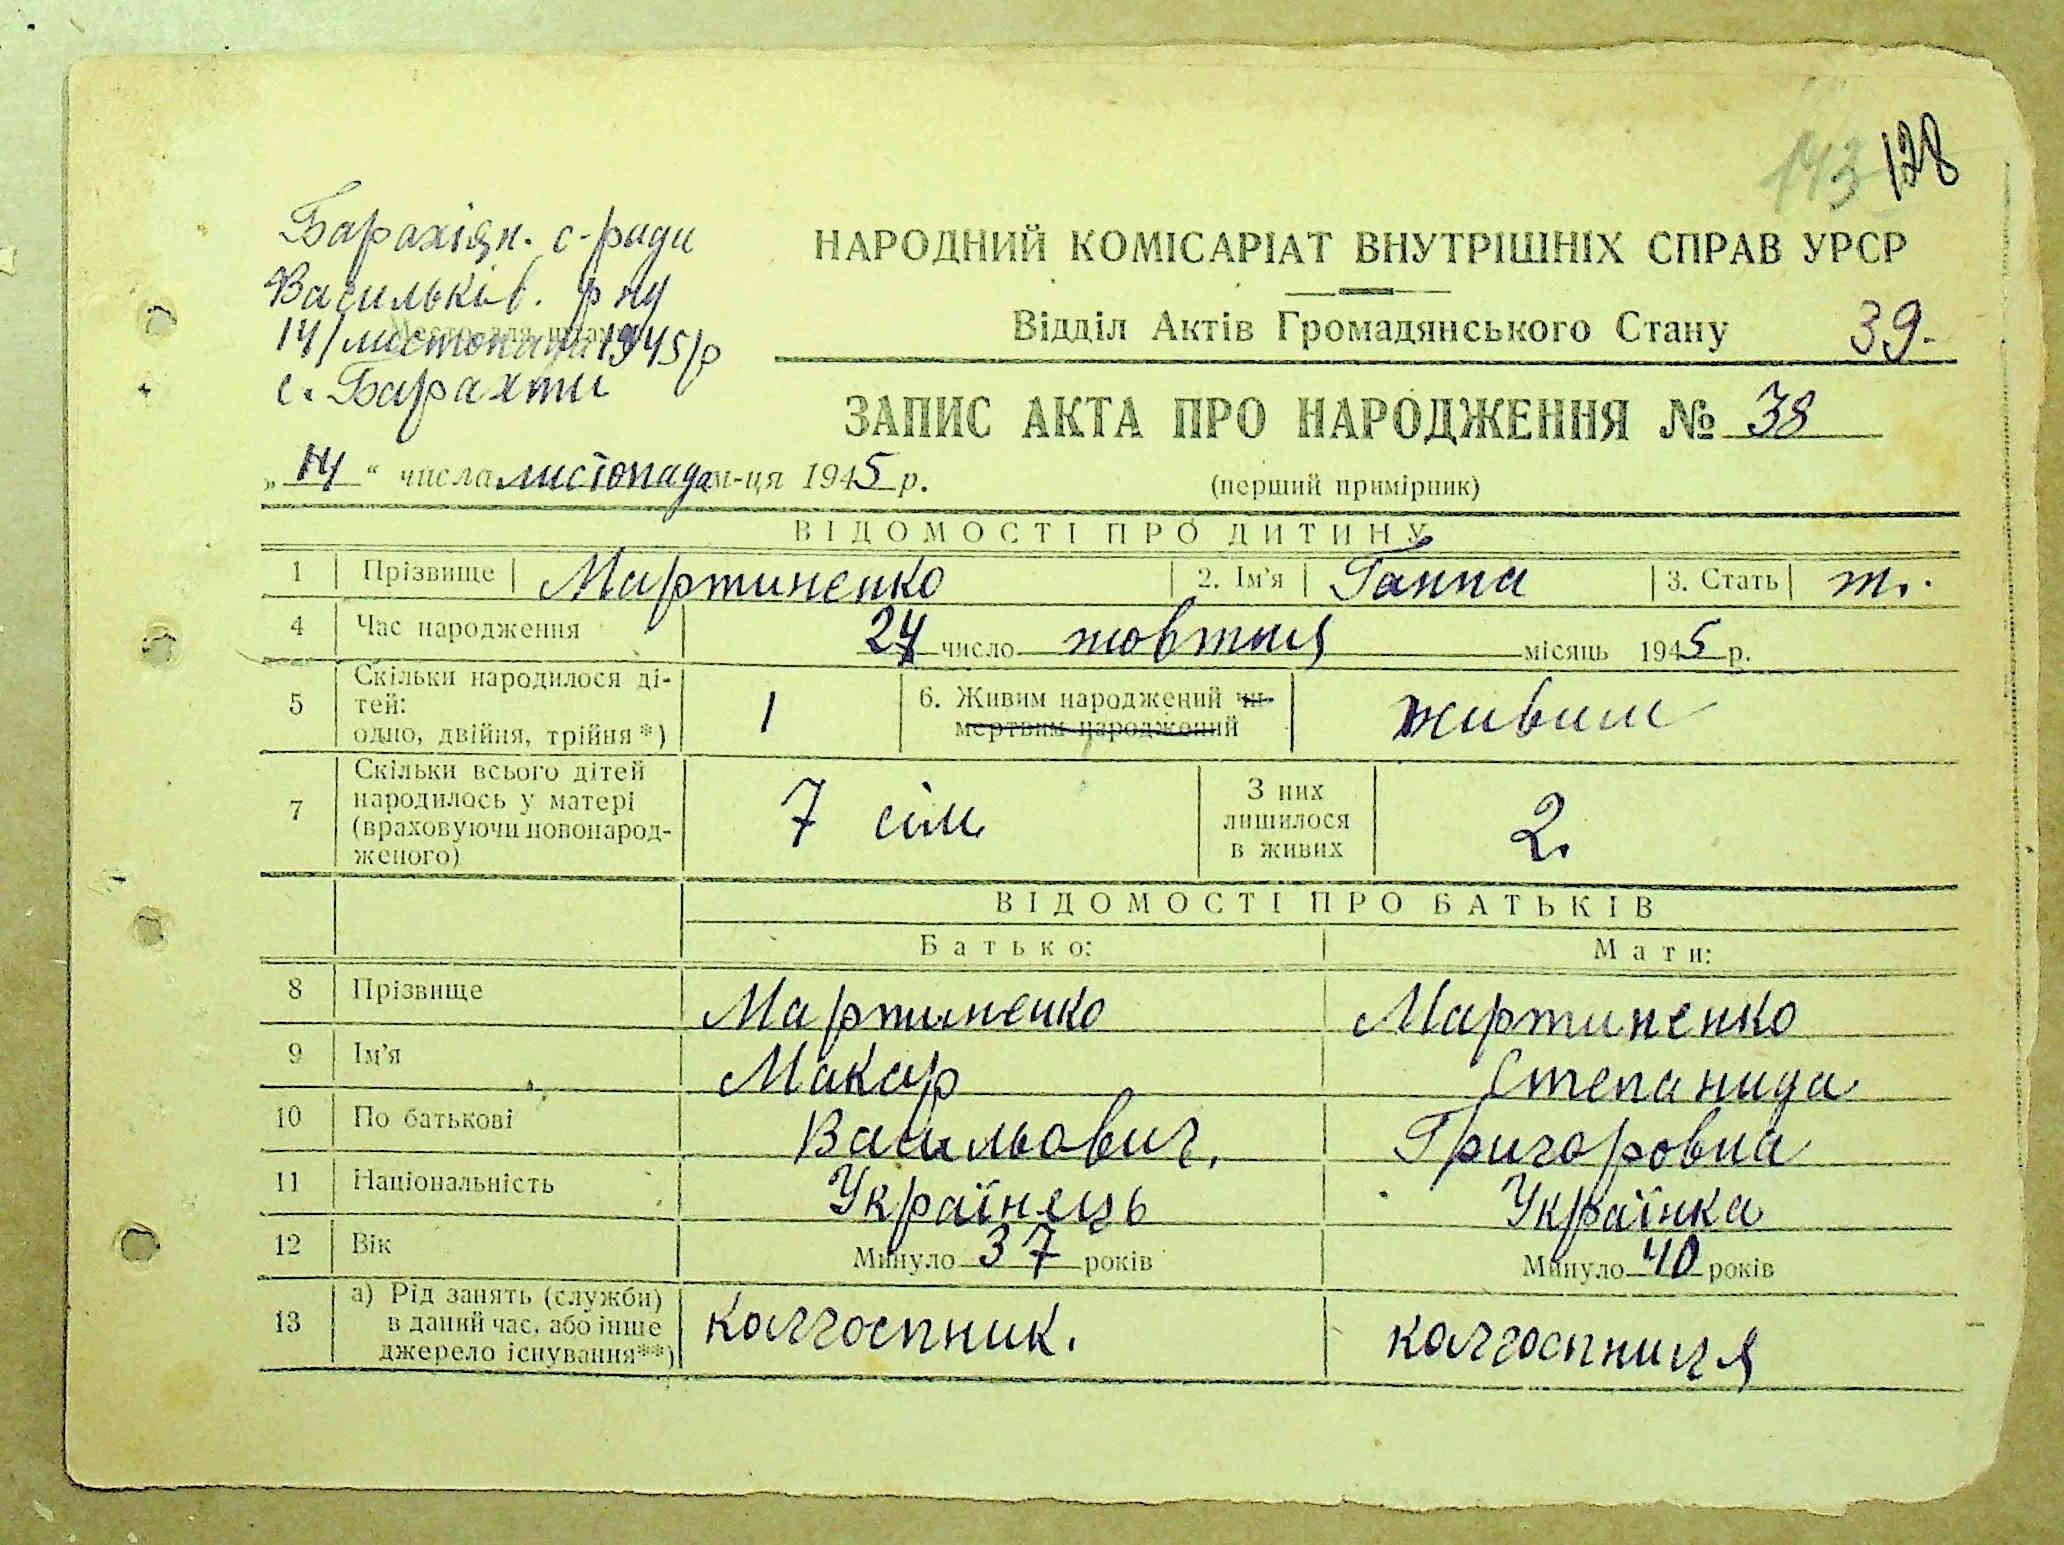 143 128
Барахтян. с-ради
Васильків. р ну
14/листопада 1945/р
с. Барахти
НАРОДНИЙ КОМІСАРІАТ ВНУТРІШНІХ СПРАВ УРСР
Відділ Актів Громадянського Стану 39.
ЗАПИС АКТА ПРО НАРОДЖЕННЯ № 38
„14“ числа листопада м-ця 1945 р. (перший примірник)
ВІДОМОСТІ ПРО ДИТИНУ
1 Прізвище Мартиненко 2. Ім'я Ганна 3. Стать ж.
4 Час народження 24 число жовтня місяць 1945 р.
5 Скільки народилося ді-
тей:
одно, двійня, трійня*) 1
6. Живим народжений чи
мертвим народжений живим
7 Скільки всього дітей
народилось у матері
(враховуючи новонарод-
женого) 7 сім
З них
лишилося
в живих 2.
ВІДОМОСТІ ПРО БАТЬКІВ
Батько: Мати:
8 Прізвище Мартиненко Мартиненко
9 Ім'я Макар Степанида
10 По батькові Васильович. Григоровна
11 Національність Українець Українка
12 Вік Минуло 37 років Минуло 40 років
13 а) Рід занять (служби)
в даний час, або інше
джерело існування**) колгоспник. колгоспниця